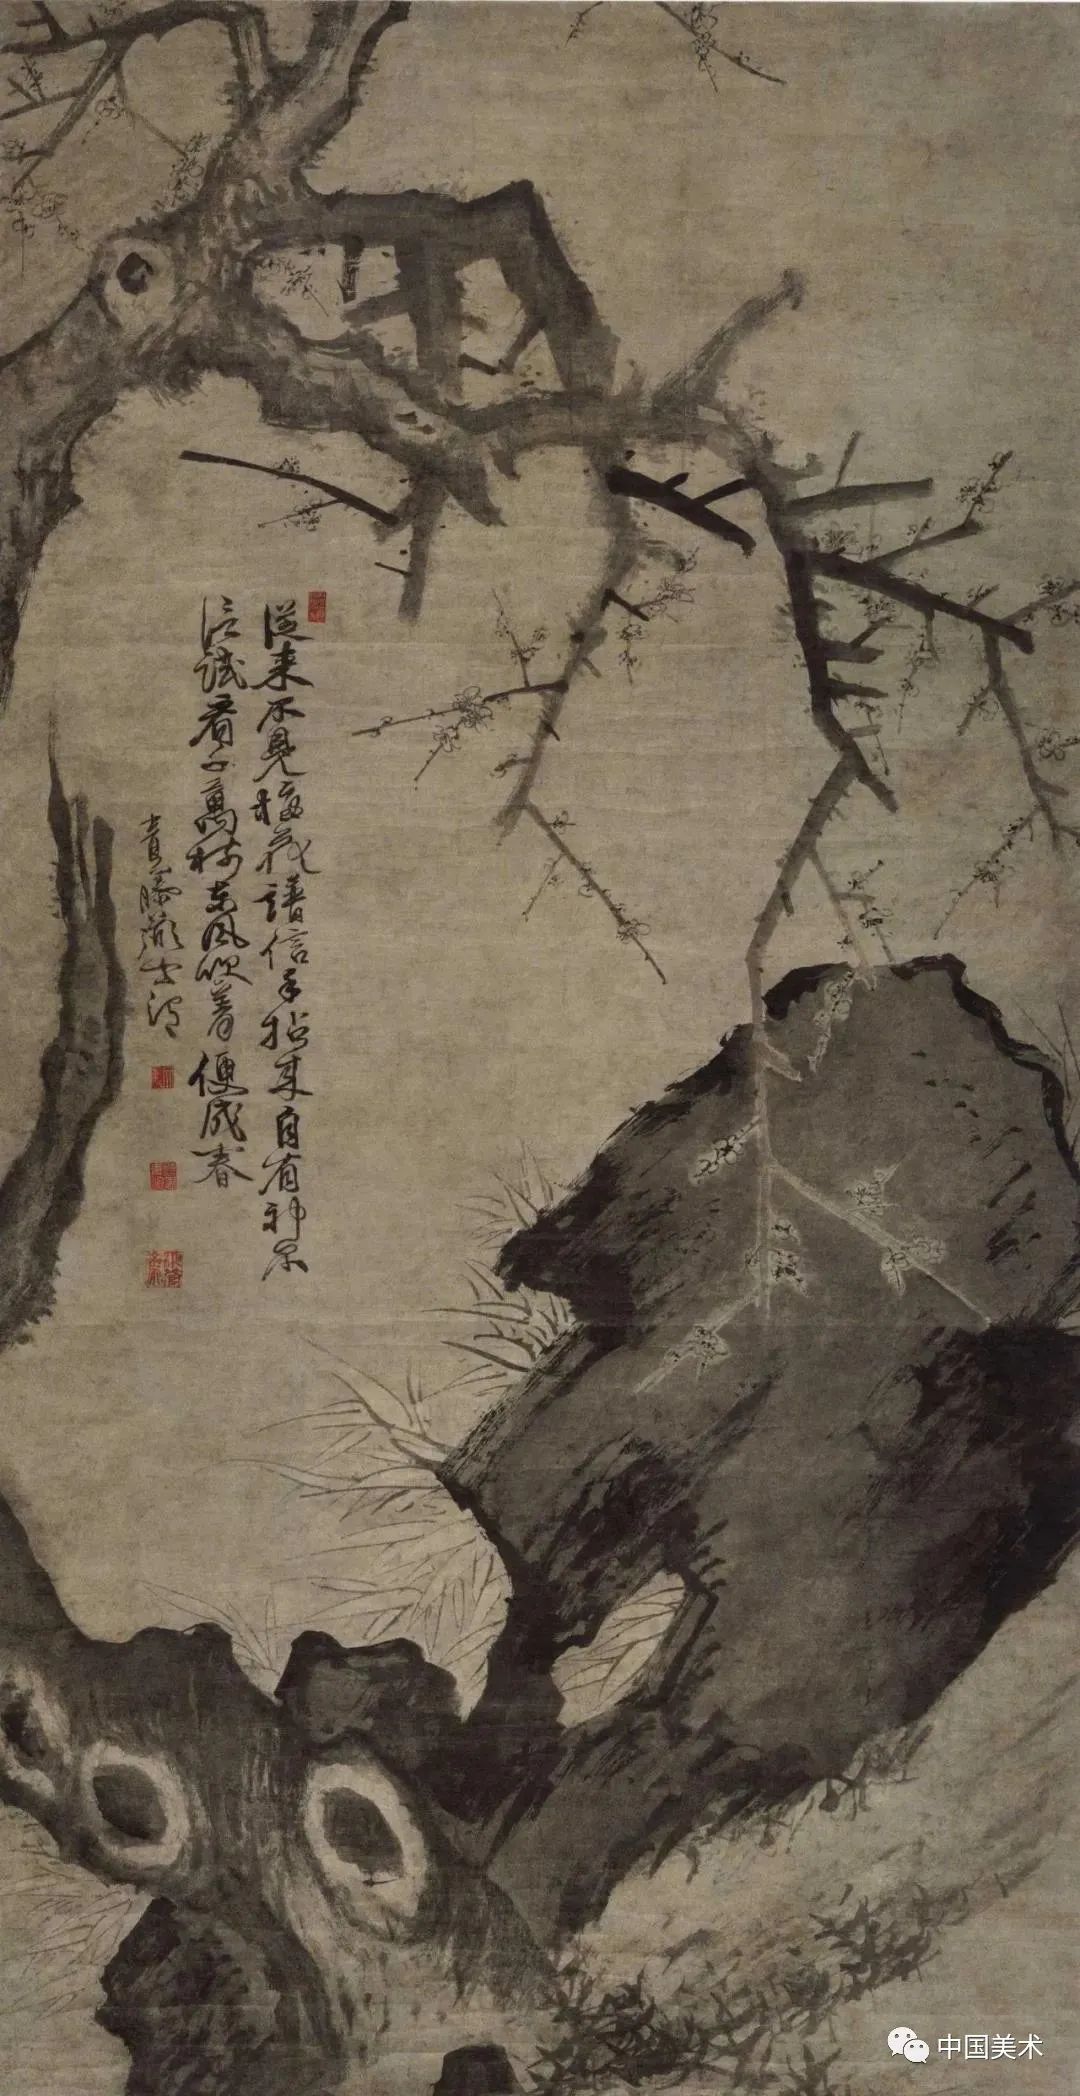 從來不見梅花譜信手拈來自有神不
信試看千萬樹東風吹着便成春
青藤道士渭
中国美术